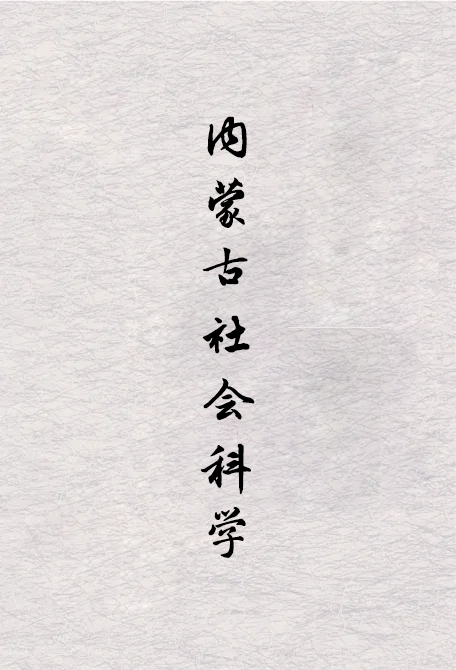 内蒙古社会科学